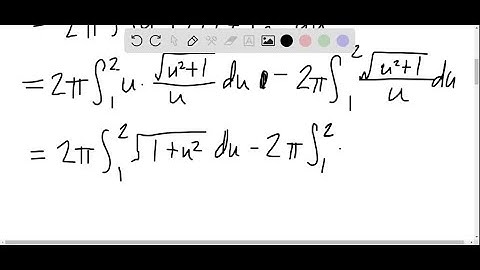 = 2π∫₁² u · √(u²+1)/u du - 2π∫₁² √(u²+1)/u du
= 2π∫₁² √(1+u²) du - 2π∫₁² ·